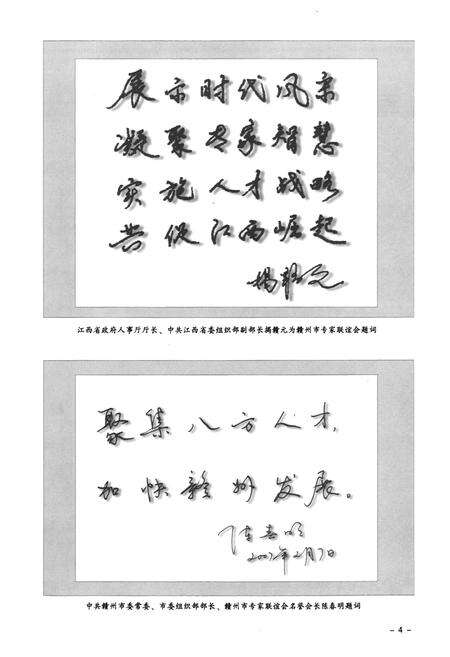 展示时代风采
凝聚专家智慧
实施人才战略
共促江西崛起
揭赣元
江西省政府人事厅厅长、中共江西省委组织部副部长揭赣元为赣州市专家联谊会题词
聚集八方人才,
加快赣州发展。
陈春明
2007年2月7日
中共赣州市委常委、市委组织部部长、赣州市专家联谊会名誉会长陈春明题词
- 4 -